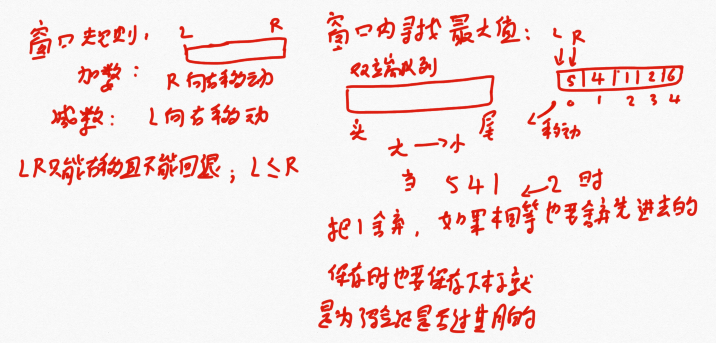 窗口规则: L R
加数: R向右移动
减数: L向右移动
LR只能右移且不能回退; L≤R
窗口内寻找最大值: L R
双端队列
5 4 1 2 6
0 1 2 3 4
头 尾 L移动
大→小
当 5 4 1 ← 2 时
把1舍弃, 如果相等也要舍弃先进去的
保存时也要保存下标就
是为了验证是否过期的